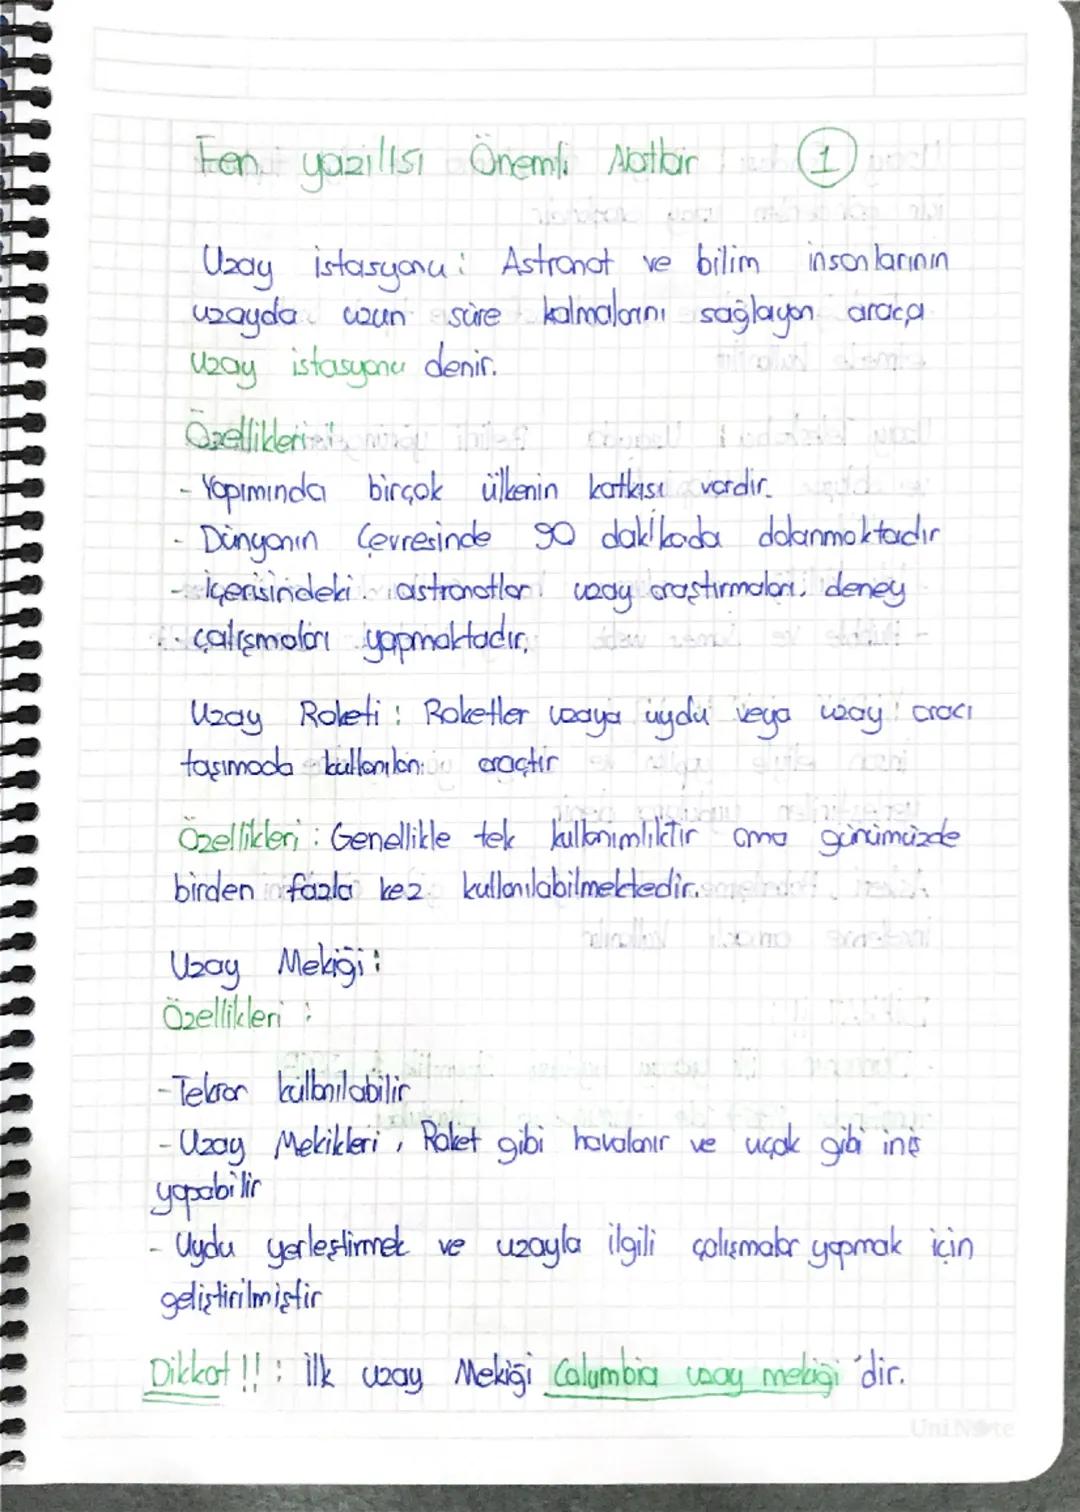 Fen yazılısı Önemli Notlar 1
Uzay istasyonu : Astronot ve bilim insanlarının
uzayda uzun süre kalmalarını sağlayan araca
uzay istasyonu denir.
Özellikleri :
- Yapımında birçok ülkenin katkısı vardır.
- Dünyanın Çevresinde 90 dakikada dolanmaktadır
- içerisindeki astronotlar uzay araştırmaları, deney
çalışmaları yapmaktadır.
Uzay Roketi : Roketler uzaya uydu veya uzay aracı
taşımada kullanılan araçtır
Özellikleri : Genellikle tek kullanımlıktır ama günümüzde
birden fazla kez kullanılabilmektedir.
Uzay Mekiği :
Özellikleri :
- Tekrar kullanılabilir
- Uzay Mekikleri, Roket gibi havalanır ve uçak gibi iniş
yapabilir
- Uydu yerleştirmek ve uzayla ilgili çalışmalar yapmak için
geliştirilmiştir
Dikkat !! : İlk uzay Mekiği Columbia uzay mekiği 'dir.
UniNote